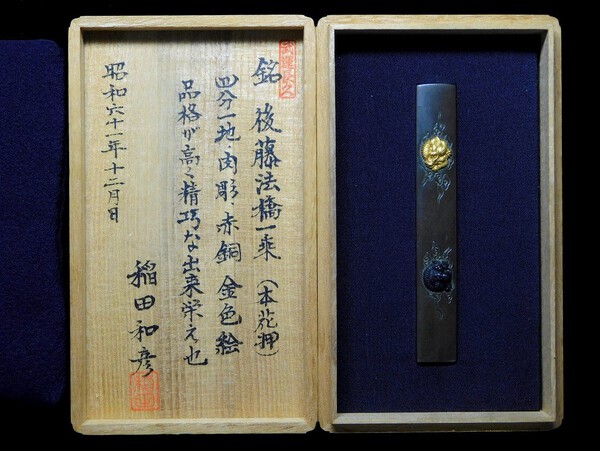 武運長久
銘 後藤法橋一乗 (本花押)
四分一地・肉彫・赤銅 金色絵
品格が高く精巧な出来栄え也
昭和六十一年十二月・日
稲田和彦